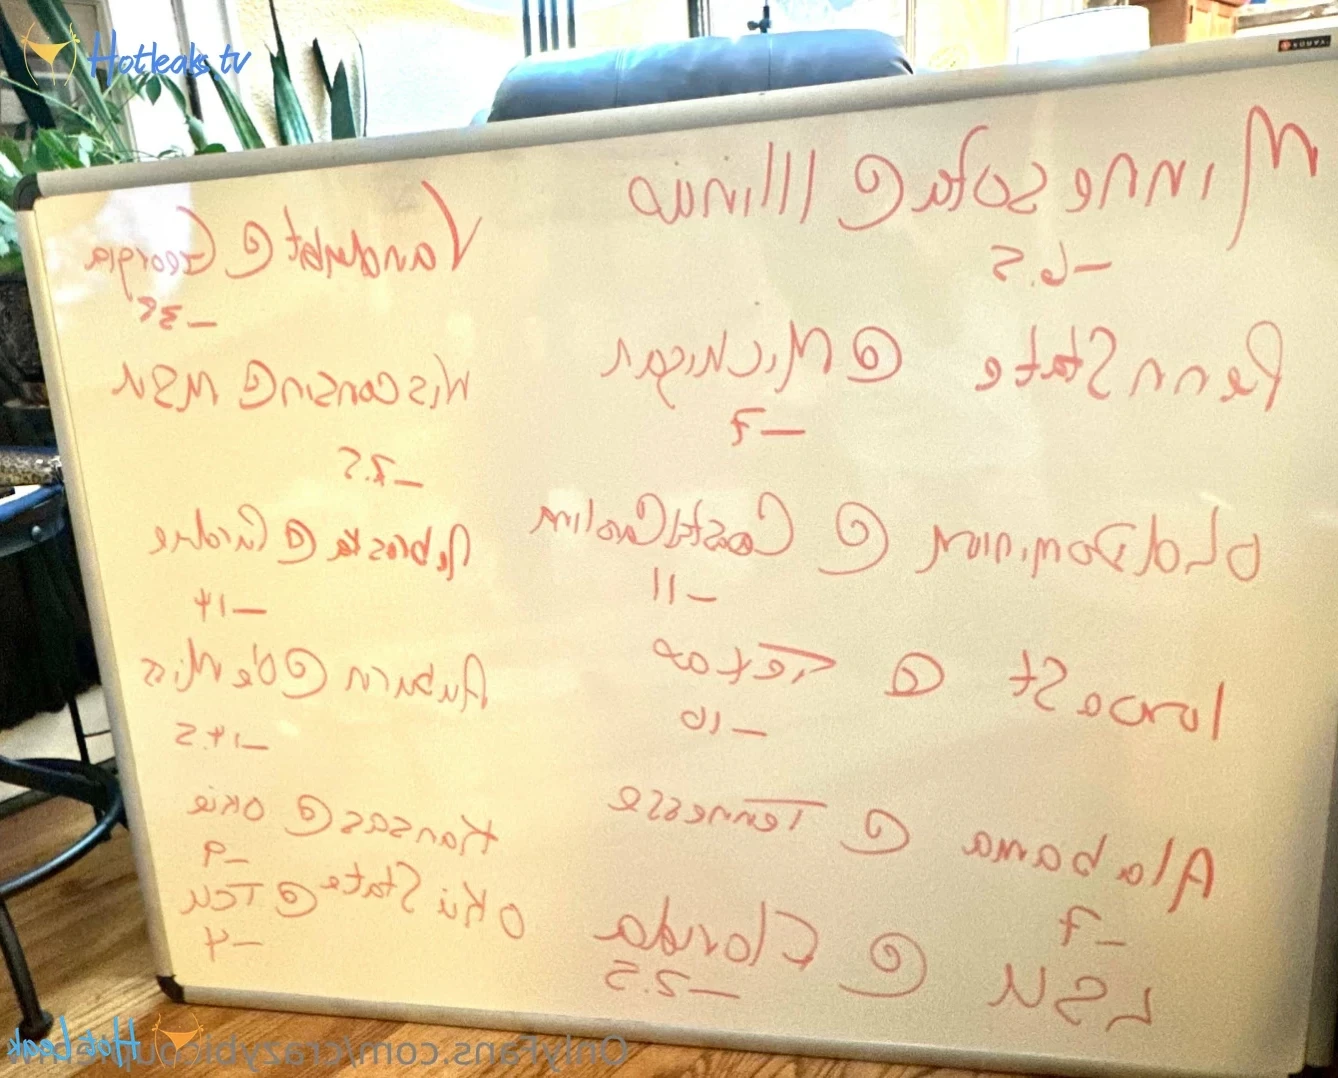 Hotleaks tv
Minnesota @ Illinios
-6.5
Penn State @ Michigan
-7
Old Dominium @ Coastl Carolina
-11
Iowa St @ Texas
-16
Alabama @ Tennesse
-7
LSU @ Florida
-2.5
Vanderbt @ Georgia
Wisconsin @ MSU
-7.5
Nebraska @ Purdue
-14
Auburn @ Ole Miss
-14.5
Kansas @ Okie
-9
Okii State @ TCU
-4
Hot Leak
OnlyFans.com/crazybicou